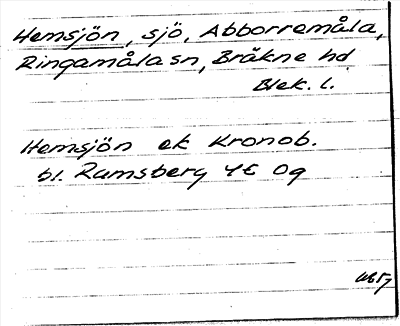 Hemsjön, sjö, Abborremåla,
Ringamåla sn, Bräkne hd
Blek. l.
Hemsjön ek Kronob.
bl. Ramsberg 4E 0g